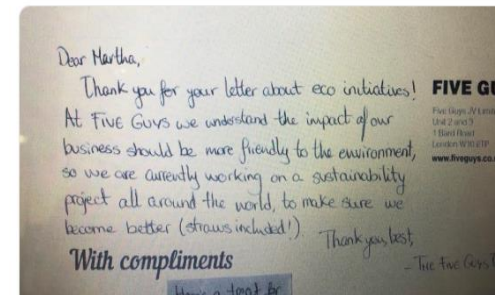 Dear Martha,
Thank you for your letter about eco initiatives!
At FIVE GUYS we understand the impact of our
business should be more friendly to the environment,
so we are currently working on a sustainability
project all around the world, to make sure we
become better (straws included!).
Thank you, best,
- THE FIVE GUYS
With compliments
FIVE GU
Five Guys JV Limi
Unit 2 and 3
1 Bard Road
London W10 6TP
www.fiveguys.co.